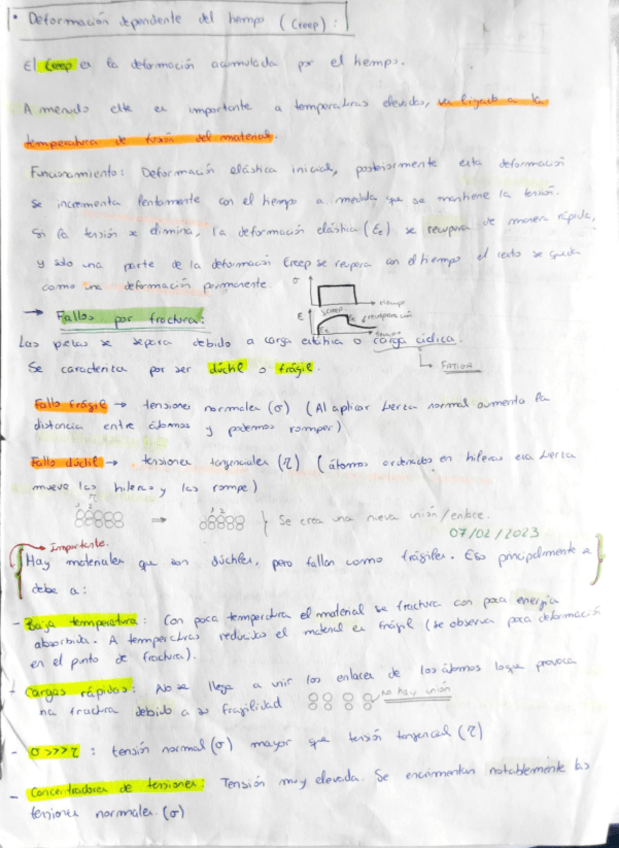 • Deformación dependiente del tiempo (Creep):
El Creep es la deformación acumulada por el tiempo.
A menudo este es importante a temperaturas elevadas, va ligado a la
temperatura de fusión del material.
Funcionamiento: Deformación elástica inicial, posteriormente esta deformación
se incrementa lentamente con el tiempo a medida que se mantiene la tensión.
Si la tensión se elimina, la deformación elástica (Ee) se recupera de manera rápida,
y solo una parte de la deformación Creep se recupera con el tiempo el resto se queda
como una deformación permanente.
σ
tiempo
→ Fallos por fractura:
ε
creep
recuperación
Las piezas se separa debido a carga estática o carga cíclica.
Se caracteriza por ser dúctil o frágil.
↳ FATIGA
Fallo frágil → tensiones normales (σ) (Al aplicar fuerza normal aumenta la
distancia entre átomos y podemos romper)
Fallo dúctil → tensiones tangenciales (τ) (átomos ordenados en hileras esa fuerza
mueve las hileras y las rompe)
1 2
⇒
1 2
} Se crea una nueva unión/enlace.
07/02/2023
→ Importante.
Hay materiales que son dúctiles, pero fallan como frágiles. Eso principalmente se
debe a:
- Baja temperatura: Con poca temperatura el material se fractura con poca energía
absorbida. A temperaturas reducidas el material es frágil (se observa poca deformación
en el punto de fractura).
- Cargas rápidas: No se llega a unir los enlaces de los átomos lo que provoca
una fractura debido a su fragilidad
no hay unión
- σ >>> τ : tensión normal (σ) mayor que tensión tangencial (τ)
- Concentradores de tensiones: Tensión muy elevada. Se encrementan notablemente las
tensiones normales. (σ)